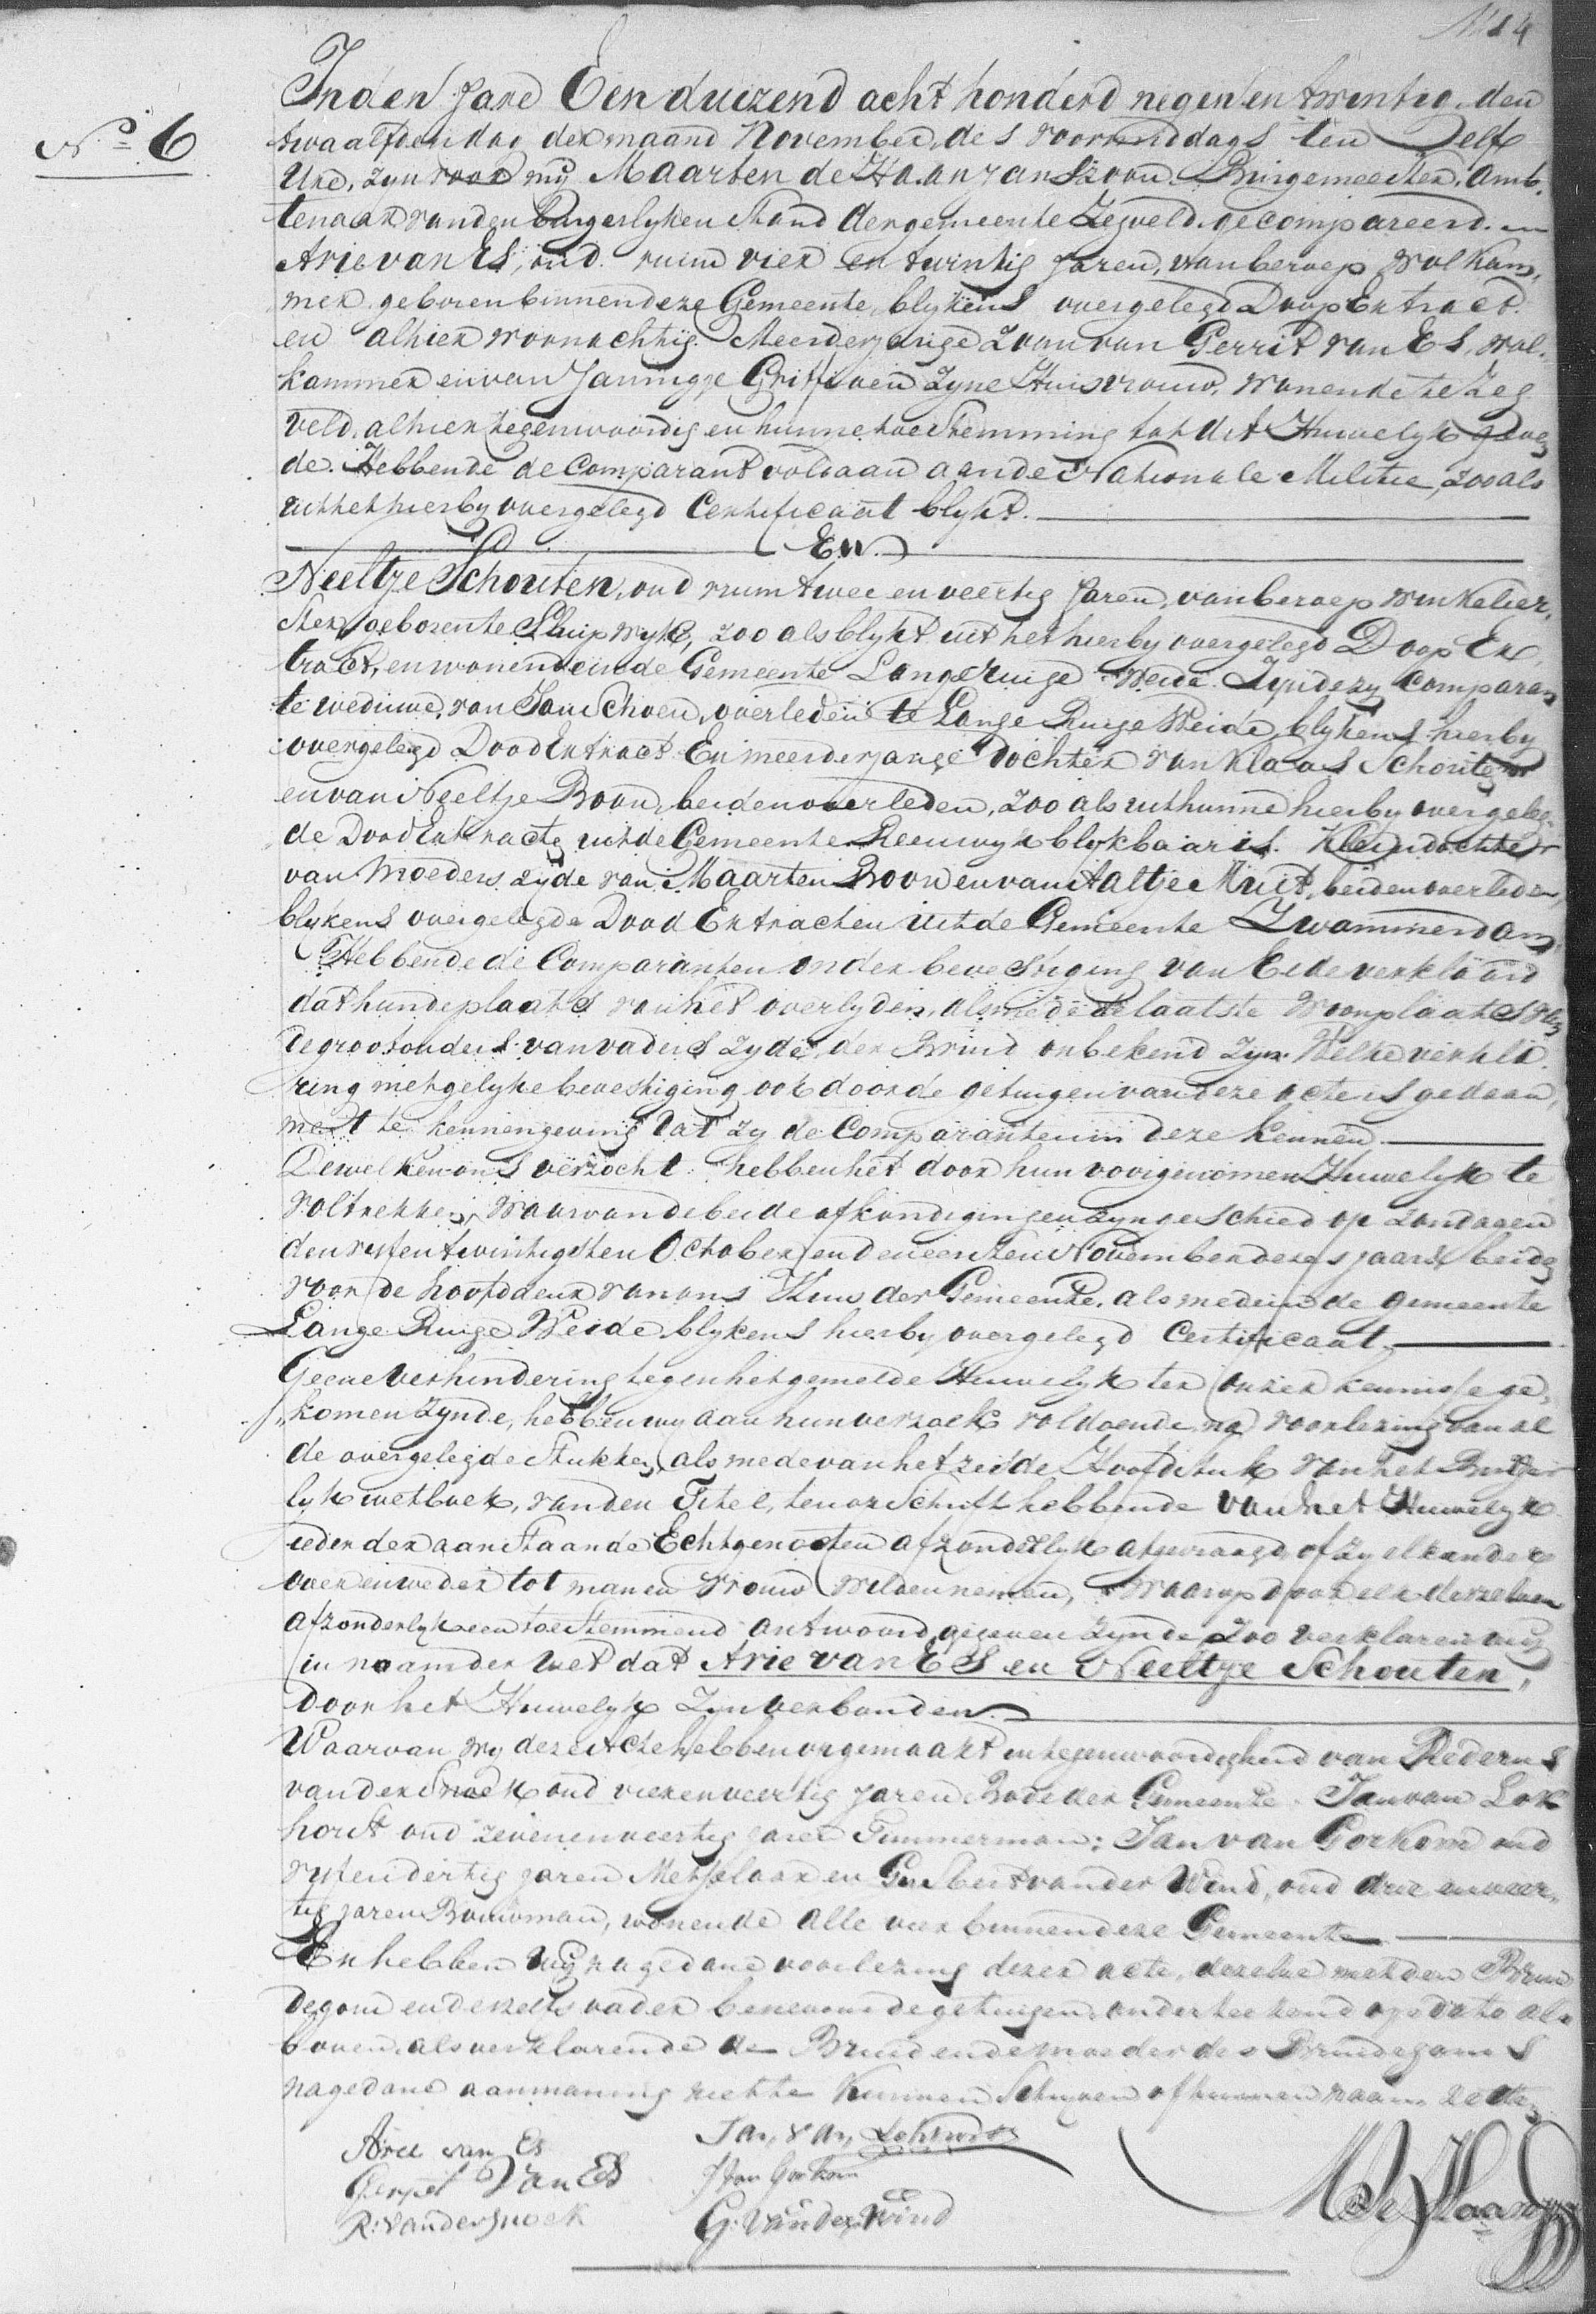 N° 6
In den Jare Een duizend acht honderd negen en twintig, den
twaalfden dag der maand November, des voormiddags ten Elf
Ure, zyn voor my Maarten de Haan Janszoon. Burgemeester. Amb„
tenaar van den Burgerlyken Stand der gemeente Zegveld, gecompareerd.
Arie van Es, oud ruim vier en twintig Jaren, van beroep Wolkam„
mer, geboren binnen deze Gemeente, blykens overgelegd Doop Extract
en alhier woonachtig. Meerderjarige Zoon van Gerrit van Es, wol„
kammer en van Jannigje Griffioen Zyne Huisvrouw, wonende te Zeg
veld, alhier tegenwoordig en hunne toestemming tot dit Huwelyk geven
de. Hebbende de Comparant voldaan aan de Nationale Militie, zoo als
uit het hierby overgelegd Certificaat blykt.
En
Neeltje Schouten, oud ruim twee en veertig Jaren, van beroep Winkelier„
ster, geboren te Sluipwyk, zoo als blykt uit het hierby overgelegd Doop Ex„
tract, en wonende in de Gemeente Lange Ruige Weide. Zynde zy Comparan
te weduwe, van Jan Schoen, overleden te Lange Ruige Weide, blykens hierby
overgelegd Dood Extract En meerderjarige Dochter van Klaas Schouten
en van Neeltje Boon, beiden overleden, zoo als uit hunne hierby overgeleg„
de Dood Extracts uit de Gemeente Reeuwyk blykbaar is. Kleindochter
van Moeders zyde van Maarten Boon en van Aaltje Muit, beiden overleden,
blykens overgelegde Dood Extracten uit de Gemeente Zwammerdam.
Hebbende de Comparanten onder bevestiging van Eede verklaard
dat hun de plaats van het overlyden, alsmede de laatste Woonplaats van
de grootouders van vaders zyde, der Bruid onbekend zyn. Welke verkla„
ring met gelyke bevestiging ook door de getuigen van deze acte is gedaan,
met te kennengeving dat zy de Comparanten in deze kennen.
Dewelke ons verzocht hebben het door hun voorgenomen Huwelyk te
voltrekken, waarvan de beide afkondigingen zyn geschied op zondagen
den vyfentwintigsten October en den eersten November dezes jaars, beide
voor de hoofddeur van ons Huis der Gemeente, als mede in de gemeente
Lange Ruige Weide blykens hierby overgelegd Certificaat.
Geene verhindering tegen het gemelde Huwelyk ter onzer kennisse ge„
komen zynde, hebben wy aan hun verzoek voldoende, na voorlezing van al
de overgelegde Stukken, als mede van het zesde Hoofdstuk van het Burger
lyk wetboek, van den Titel, ten opschrift hebbende van het Huwelyk
ieder der aanstaande Echtgenooten afzonderlyk afgevraagd, of zy elkander
over en weder tot man en Vrouw wilden nemen, waarop door elk derzelven
afzonderlyk een toestemmend antwoord gegeven zynde, Zoo verklaren wy
in naam der Wet dat Arie van Es en Neeltje Schouten,
door het Huwelyk zyn verbonden.
Waarvan wy deze Acte hebben opgemaakt in tegenwoordigheid van Rederus
van der Snoek oud vierenveertig jaren Bode der Gemeente. Jan van Lok
horst oud zevenenveertig jaren Timmerman; Jan van Gorkom oud
vyfendertig jaren Metselaar en Gysbert van der Wind, oud drie en veer„
tig jaren Bouwman, wonende alle vier binnen deze Gemeente
En hebben wy na gedane voorlezing dezer acte, dezelve met den Brui
degom en deszelfs vader benevens de getuigen, onderteekend op dato als
boven, als verklarende de Bruid en de moeder des Bruidegoms
na gedane aanmaning niet te kunnen Schryven of hunnen naam zetten.
Arie van Es
Jan van Lokhorst
Gerret Van Es
J Van Gorkom
R: van der Snoek
G. van der Wind
M de Haan Jz